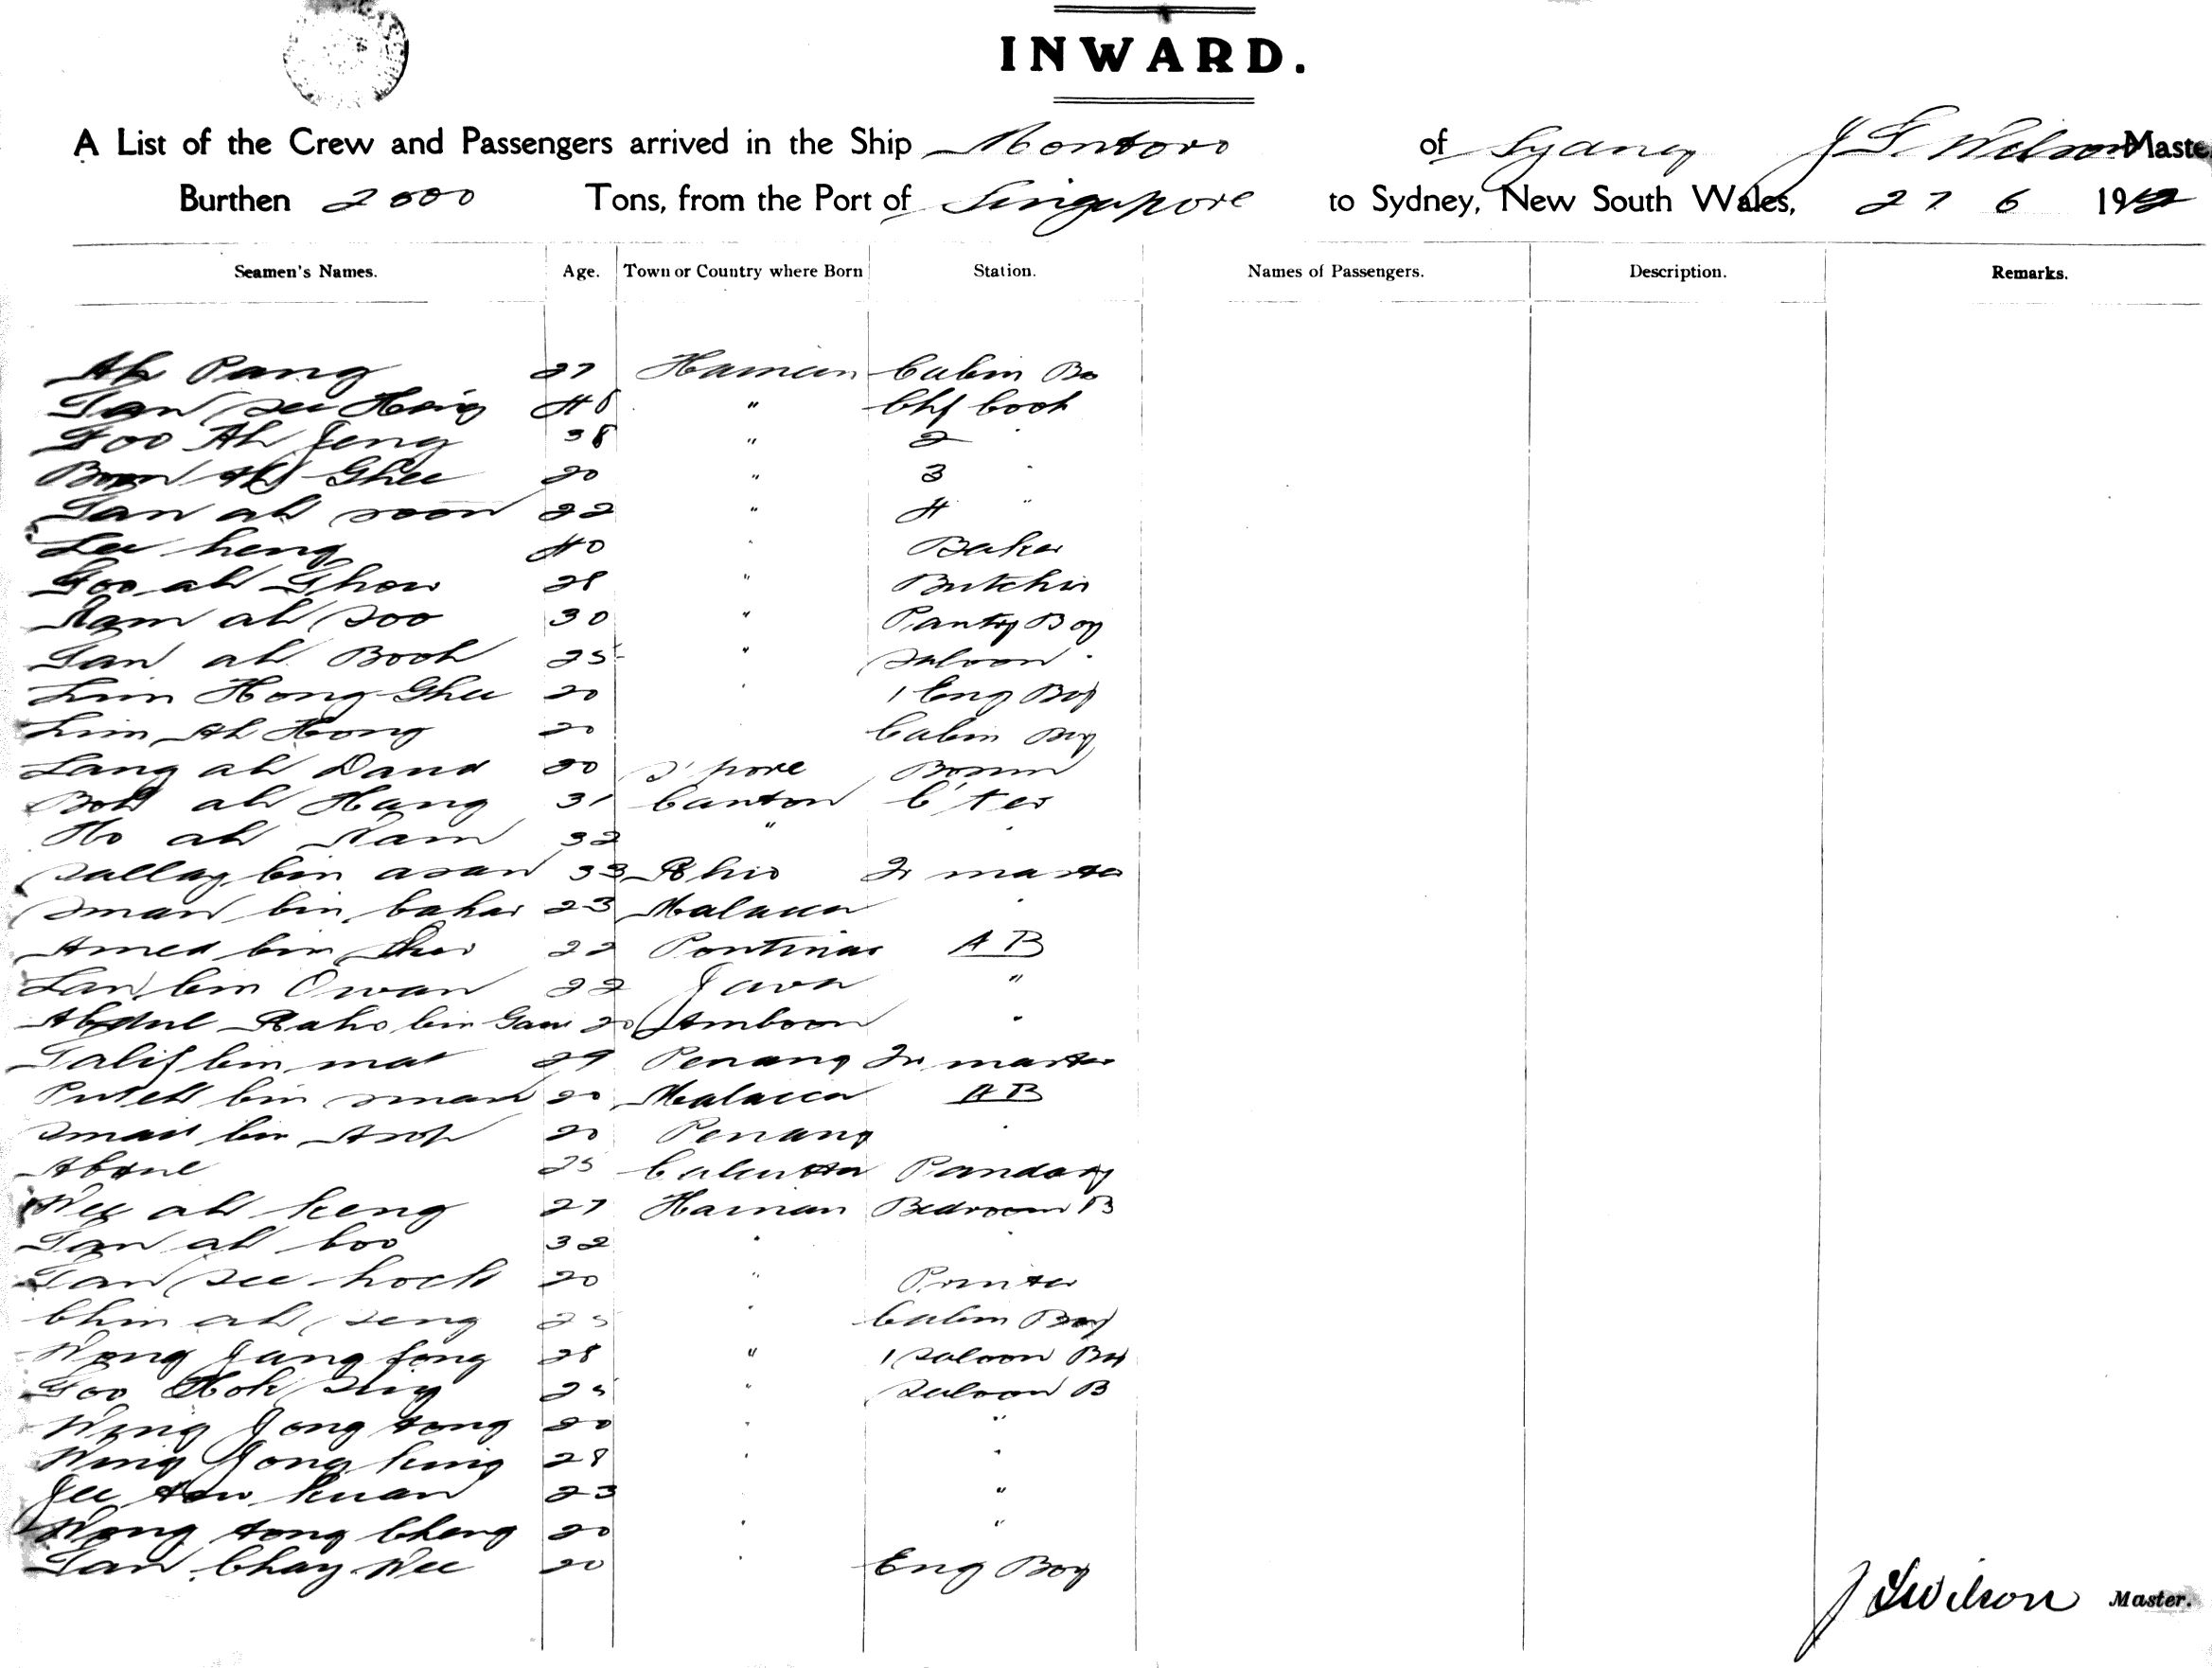 INWARD.
A List of the Crew and Passengers arrived in the Ship Montoro of Sydney J S Wilson Master
Burthen 2000 Tons, from the Port of Singapore to Sydney, New South Wales, 27 6 1912
Seamen's Names. Age. Town or Country where Born Station. Names of Passengers. Description. Remarks.
Ah Pang 27 Hainan Cabin Bo
Tan See Hong 46 " Chf Cook
Foo Ah Jeng 38 " 2 "
Boon Ah Ghee 20 " 3 "
Tan ah soon 22 " 4 "
Lee heng 40 " Baker
Foo ah Ghow 28 " Butcher
Nam ah soo 30 " Pantry Boy
Tan ah Booh 25 " Saloon "
Lim Hong Ghee 20 " 1 Eng Boy
Lim Ah Hong 20 Cabin Boy
Lang ah Daud 20 S'pore Bosun
Boh ah Hang 31 Canton C'ter
Ho ah Nam 32 " "
Sallag bin asan 33 Rhio Qr master
Sman bin bakar 23 Malacca "
Amed bin 22 Pontinac A B
Lan bin Owan 22 Java "
Abdul Raho bin Gani 20 Amboon "
Talif bin mat 29 Penang Qr master
Puteh bin sman 20 Malacca A B
Smail bin 20 Penang "
Abdul 25 Calcutta Pandary
Wee ah keng 27 Hainan Bedroom B
Tan ah boo 32 " "
Tan see hock 20 " Printer
Chin ah seng 25 " Cabin Boy
Wong Jang fong 28 " 1 Saloon Boy
Foo Hok Sing 25 " Saloon B
Wong Jong tong 20 " "
Wong Jong king 28 " "
Jee tow kuan 23 "
Wong tong Cheng 20 " "
Tan Chay Wee 20 " Eng Boy
J S Wilson Master.